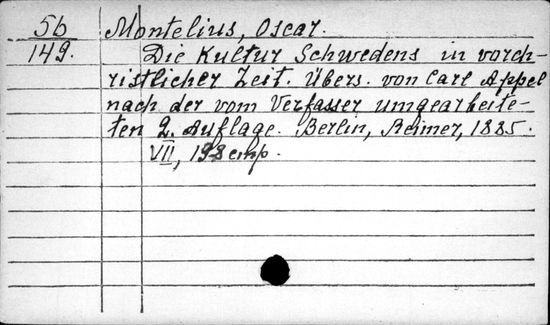 56 Montelius, Oscar.
149. Die Kultur Schwedens in vorch-
ristlicher Zeit. Übers. von Carl Appel
nach der vom Verfasser umgearbeite-
ten 2. Auflage. Berlin, Reimer, 1885.
VII, 198 стр.